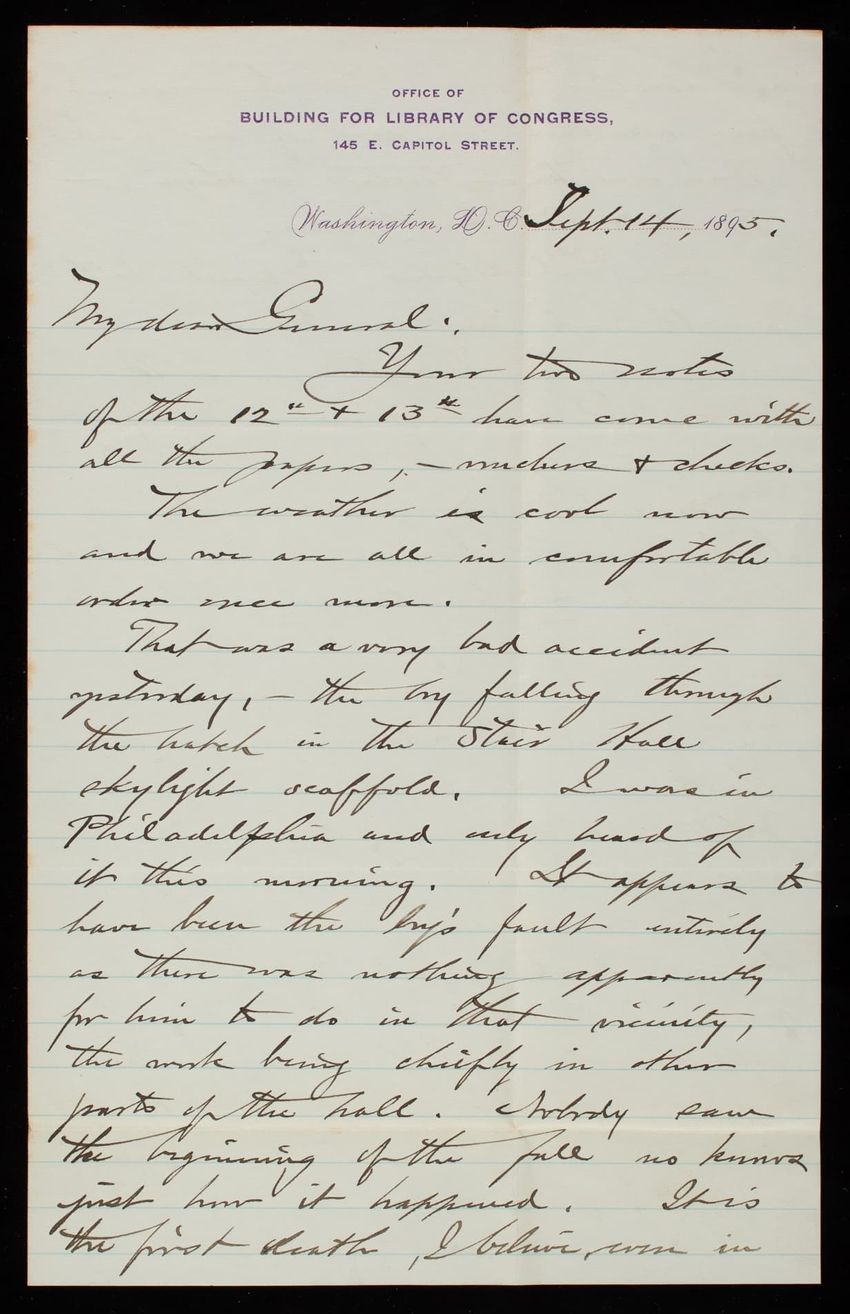 OFFICE OF
BUILDING FOR LIBRARY OF CONGRESS,
145 E. CAPITOL STREET.
Washington, D.C. Sept. 14, 1895.
My dear General:
Your two notes
of the 12th & 13th have come with
all the papers, — & checks.
The weather is cool now
and we are all in comfortable
order once more.
That was a very bad accident
yesterday, — the boy falling through
the hatch in the Stair Hall
skylight scaffold. I was in
Philadelphia and only heard of
it this morning. It appears to
have been the boy's fault entirely
as there was nothing apparently
for him to do in that vicinity,
the work being chiefly in other
parts of the hall. Nobody saw
the beginning of the fall no knows
just how it happened. It is
the first death, I believe, even in